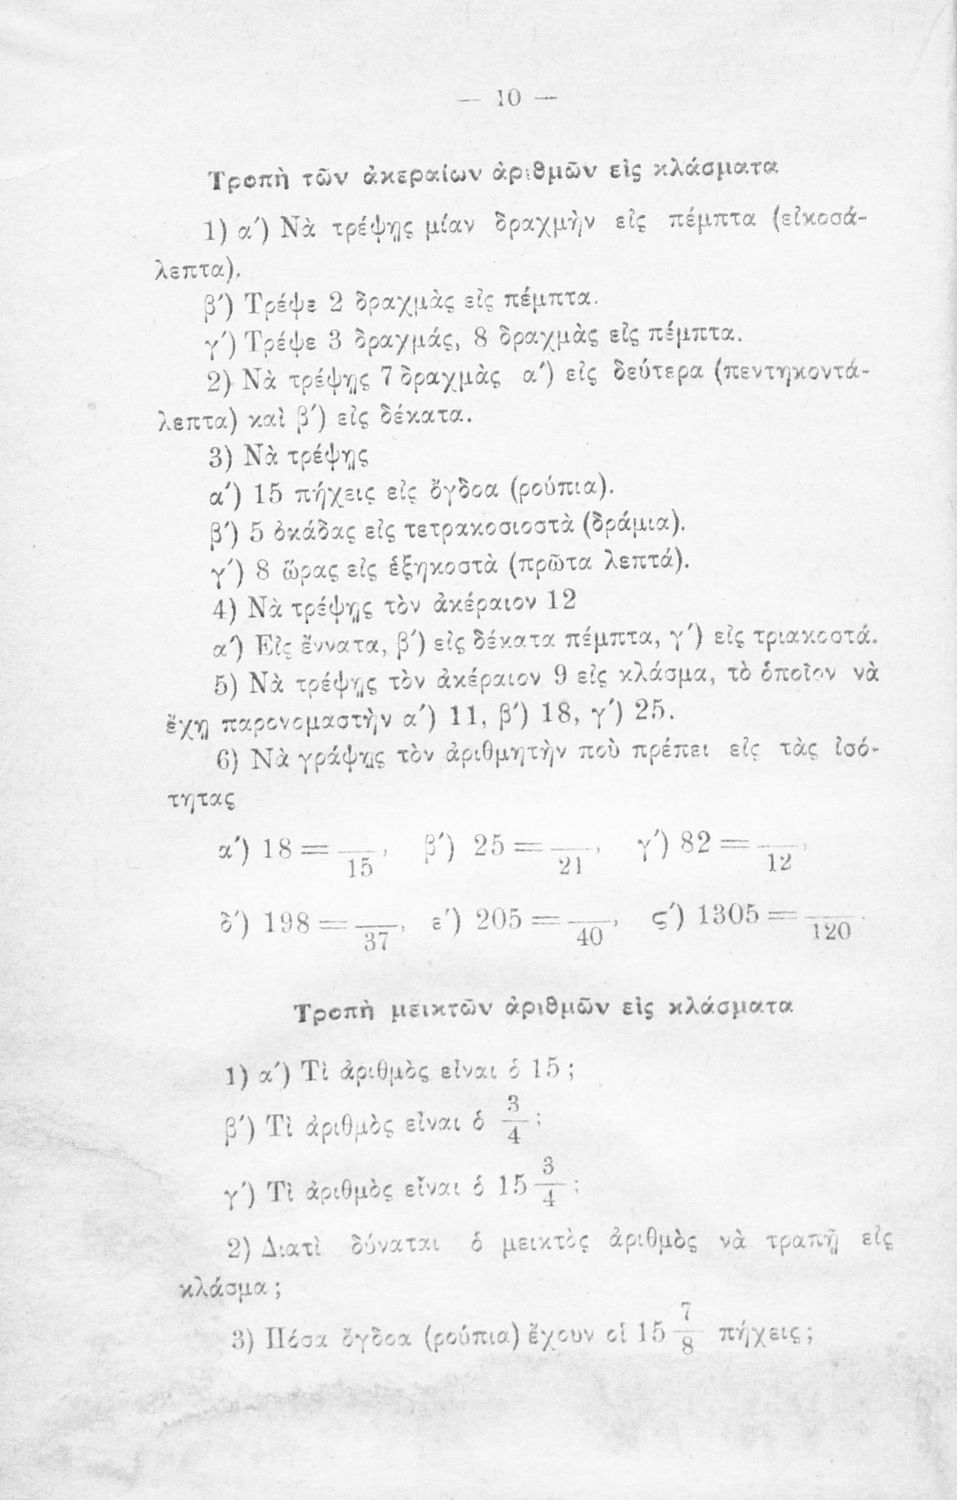 — 10 —
Τροπὴ τῶν ἀκεραίων ἀριθμῶν εἰς κλάσματα
1) α΄) Νὰ τρέψῃς μίαν δραχμὴν εἰς πέμπτα (εἰκοσά-
λεπτα).
β΄) Τρέψε 2 δραχμὰς εἰς πέμπτα.
γ΄) Τρέψε 3 δραχμάς, 8 δραχμὰς εἰς πέμπτα.
2) Νὰ τρέψῃς 7 δραχμὰς α΄) εἰς δεύτερα (πεντηκοντά-
λεπτα) καὶ β΄) εἰς δέκατα.
3) Νὰ τρέψῃς
α΄) 15 πήχεις εἰς ὄγδοα (ρούπια).
β΄) 5 ὀκάδας εἰς τετρακοσιοστὰ (δράμια).
γ΄) 8 ὥρας εἰς ἑξηκοστὰ (πρῶτα λεπτά).
4) Νὰ τρέψῃς τὸν ἀκέραιον 12
α΄) Εἰς ἔννατα, β΄) εἰς δέκατα πέμπτα, γ΄) εἰς τριακοστά.
5) Νὰ τρέψῃς τὸν ἀκέραιον 9 εἰς κλάσμα, τὸ ὁποῖον νὰ
ἔχῃ παρονομαστὴν α΄) 11, β΄) 18, γ΄) 25.
6) Νὰ γράψῃς τὸν ἀριθμητὴν ποὺ πρέπει εἰς τὰς ἰσό-
τητας
α΄) 18 = —/15, β΄) 25 = —/21, γ΄) 82 = —/12,
δ΄) 198 = —/37, ε΄) 205 = —/40, ς΄) 1305 = —/120.
Τροπὴ μεικτῶν ἀριθμῶν εἰς κλάσματα
1) α΄) Τὶ ἀριθμὸς εἶναι ὁ 15 ;
β΄) Τὶ ἀριθμὸς εἶναι ὁ 3/4 ;
γ΄) Τὶ ἀριθμὸς εἶναι ὁ 15 3/4 ;
2) Διατὶ δύναται ὁ μεικτὸς ἀριθμὸς νὰ τραπῇ εἰς
κλάσμα ;
3) Πόσα ὄγδοα (ρούπια) ἔχουν οἱ 15 7/8 πήχεις ;